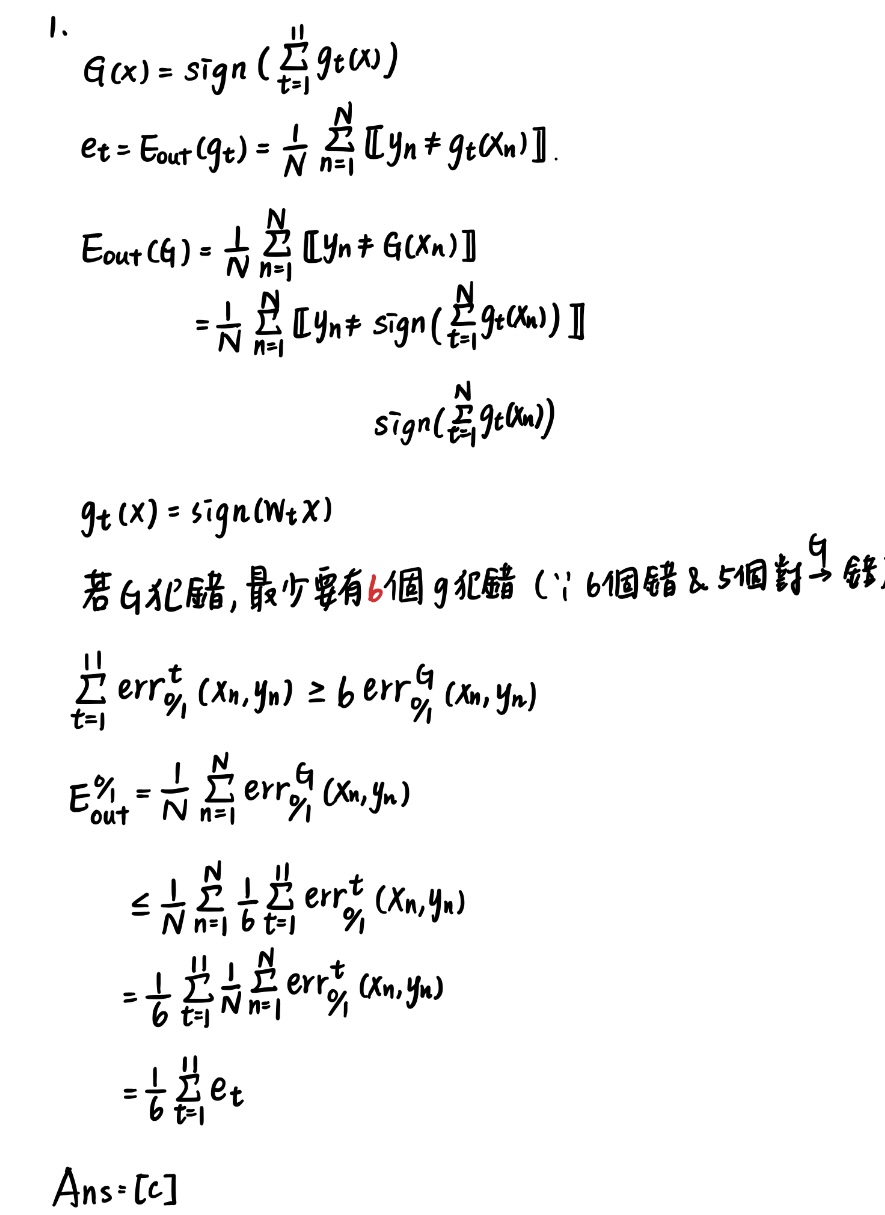 1.
G(x) = sign ( Σ_{t=1}^{11} g_t(x) )
e_t = E_out(g_t) = 1/N Σ_{n=1}^{N} ⟦y_n ≠ g_t(x_n)⟧.
E_out(G) = 1/N Σ_{n=1}^{N} ⟦y_n ≠ G(x_n)⟧
= 1/N Σ_{n=1}^{N} ⟦y_n ≠ sign( Σ_{t=1}^{N} g_t(x_n) )⟧
sign( Σ_{t=1}^{N} g_t(x_n) )
g_t(x) = sign(W_t x)
若G犯錯, 最少要有6個g犯錯 (∵ 6個錯 & 5個對 →^G 錯)
Σ_{t=1}^{11} err^t_{0/1} (x_n, y_n) ≥ 6 err^G_{0/1} (x_n, y_n)
E^{0/1}_{out} = 1/N Σ_{n=1}^{N} err^G_{0/1} (x_n, y_n)
≤ 1/N Σ_{n=1}^{N} 1/6 Σ_{t=1}^{11} err^t_{0/1} (x_n, y_n)
= 1/6 Σ_{t=1}^{11} 1/N Σ_{n=1}^{N} err^t_{0/1} (x_n, y_n)
= 1/6 Σ_{t=1}^{11} e_t
Ans = [c]